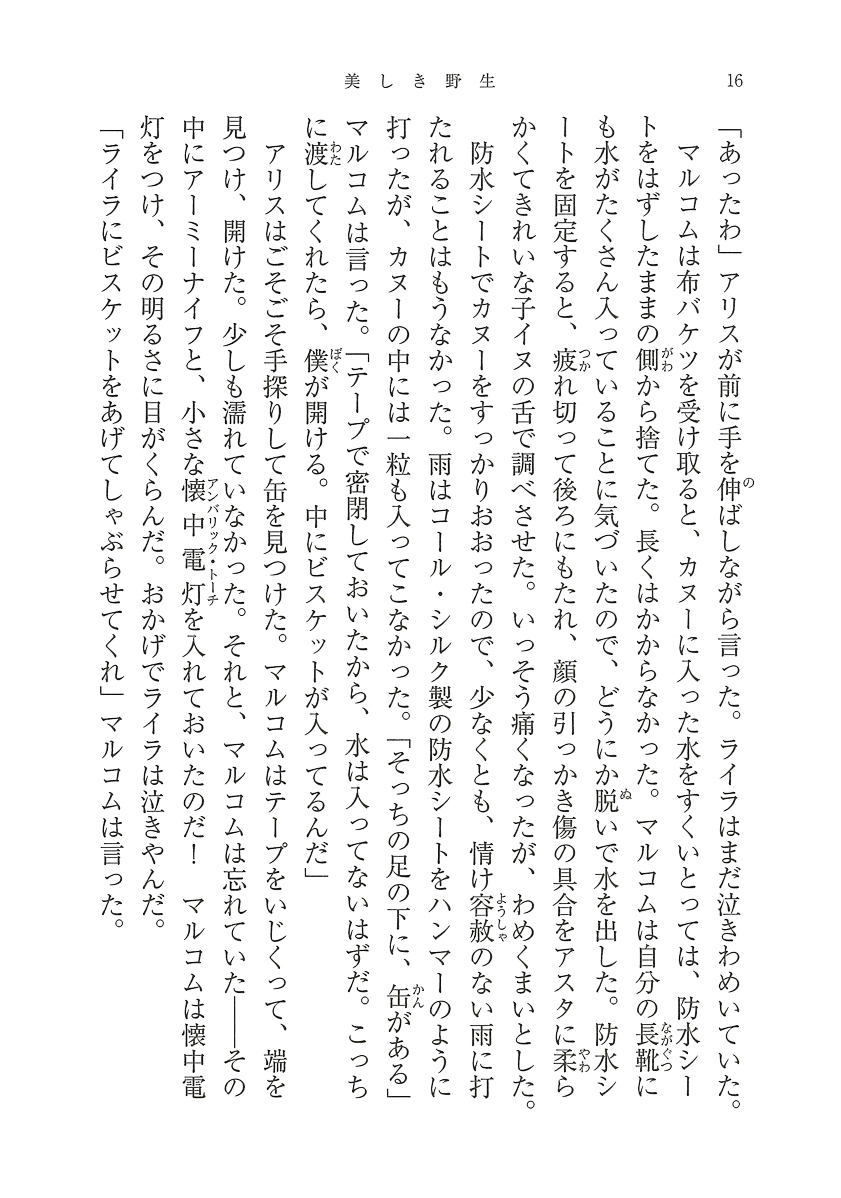 美しき野生
16
「あったわ」アリスが前に手を伸ばしながら言った。ライラはまだ泣きわめいていた。
マルコムは布バケツを受け取ると、カヌーに入った水をすくいとっては、防水シー
トをはずしたままの側から捨てた。長くはかからなかった。マルコムは自分の長靴に
も水がたくさん入っていることに気づいたので、どうにか脱いで水を出した。防水シ
ートを固定すると、疲れ切って後ろにもたれ、顔の引っかき傷の具合をアスタに柔ら
かくてきれいな子イヌの舌で調べさせた。いっそう痛くなったが、わめくまいとした。
防水シートでカヌーをすっかりおおったので、少なくとも、情け容赦のない雨に打
たれることはもうなかった。雨はコール・シルク製の防水シートをハンマーのように
打ったが、カヌーの中には一粒も入ってこなかった。「そっちの足の下に、缶がある」
マルコムは言った。「テープで密閉しておいたから、水は入ってないはずだ。こっち
に渡してくれたら、僕が開ける。中にビスケットが入ってるんだ」
アリスはごそごそ手探りして缶を見つけた。マルコムはテープをいじくって、端を
見つけ、開けた。少しも濡れていなかった。それと、マルコムは忘れていた――その
中にアーミーナイフと、小さな懐中電灯を入れておいたのだ！　マルコムは懐中電
灯をつけ、その明るさに目がくらんだ。おかげでライラは泣きやんだ。
「ライラにビスケットをあげてしゃぶらせてくれ」マルコムは言った。